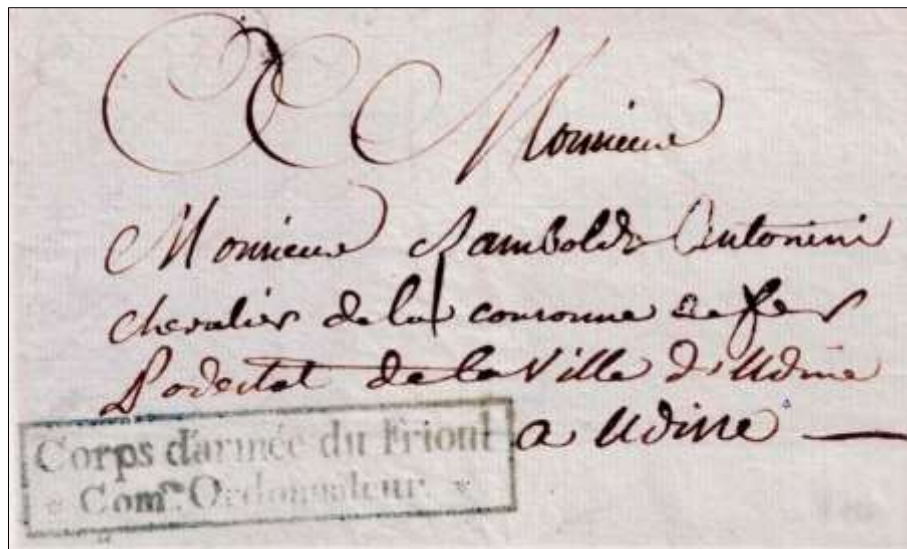 A Monsieur
Monsieur Ramboldo Antonini
chevalier de la couronne de fer
Podestat de la Ville d'Udine
a Udine
Corps d'armée du Frioul
Comre. Ordonnateur